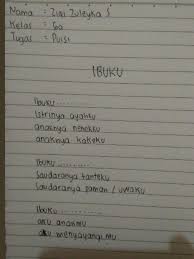 Nama = Zivi Zuleyka S
Kelas = 5a
Tugas = Puisi
IBUKU
Ibuku ..........
Istrinya ayahku
anaknya nenekku
anaknya kakekku
Ibuku ..........
Saudaranya tanteku
Saudaranya paman / uwaku
Ibuku ..........
aku anakmu
aku menyayangimu